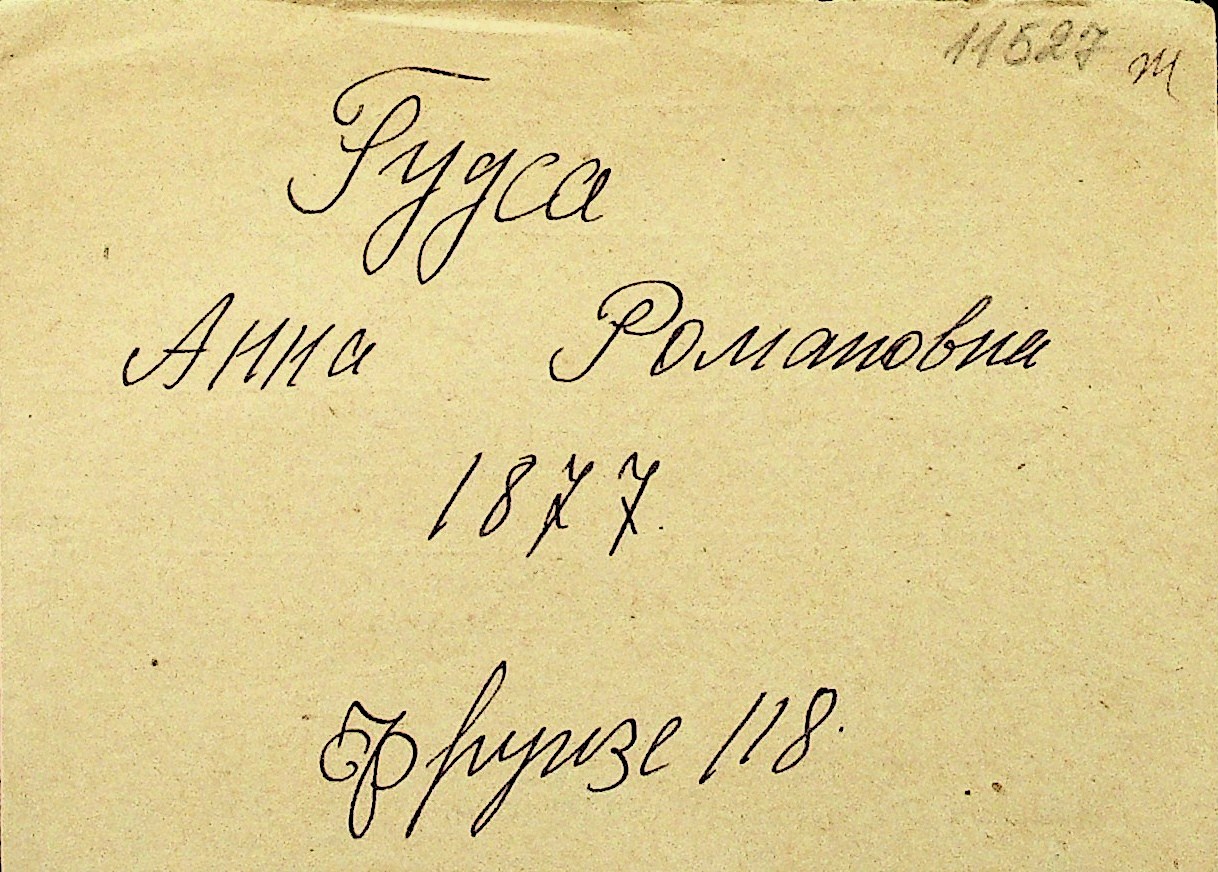 11527 т
Гудса
Анна Романовна
1877.
Фрунзе 118.